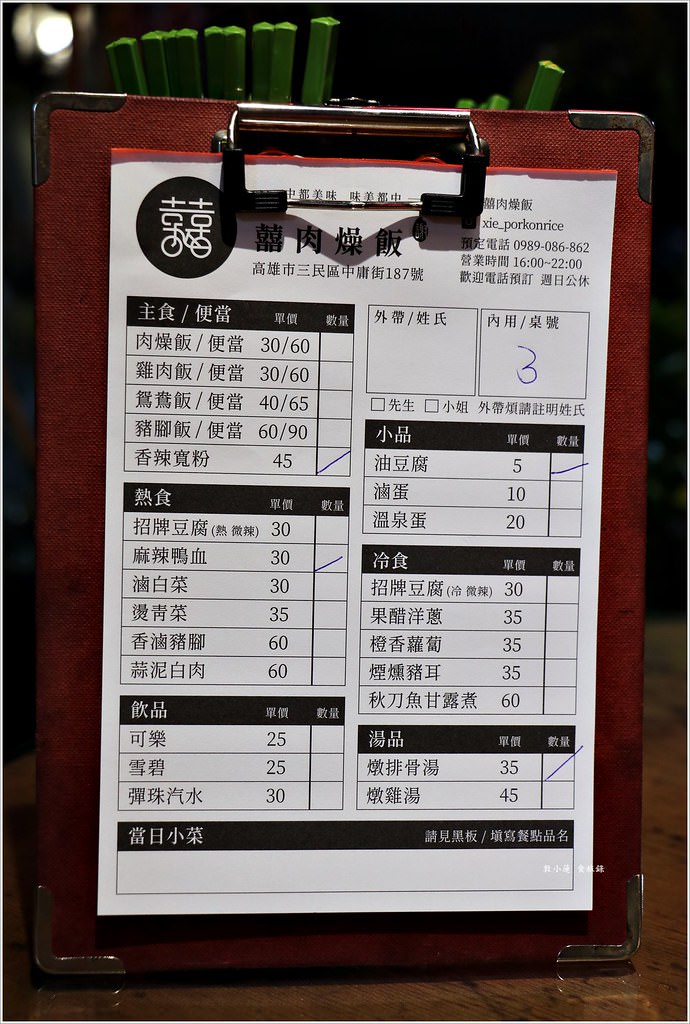 中都美味 味美都中
囍肉燥飯
高雄市三民區中庸街187號
囍肉燥飯
xie_porkonrice
預定電話 0989-086-862
營業時間 16:00~22:00
歡迎電話預訂 週日公休
主食/便當 單價 數量
肉燥飯/便當 30/60
雞肉飯/便當 30/60
鴛鴦飯/便當 40/65
豬腳飯/便當 60/90
香辣寬粉 45
熱食 單價 數量
招牌豆腐(熱 微辣) 30
麻辣鴨血 30
滷白菜 30
燙青菜 35
香滷豬腳 60
蒜泥白肉 60
飲品 單價 數量
可樂 25
雪碧 25
彈珠汽水 30
外帶/姓氏
內用/桌號
3
先生 小姐 外帶煩請註明姓氏
小品 單價 數量
油豆腐 5
滷蛋 10
溫泉蛋 20
冷食 單價 數量
招牌豆腐(冷 微辣) 30
果醋洋蔥 35
橙香蘿蔔 35
煙燻豬耳 35
秋刀魚甘露煮 60
湯品 單價 數量
燉排骨湯 35
燉雞湯 45
當日小菜 請見黑板/填寫餐點品名